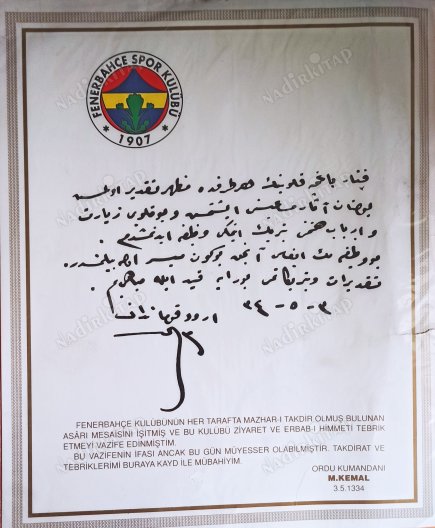 FENERBAHÇE SPOR KULÜBÜ
* 1907 *
فنار باغچه قلوبنك هر طرفده مظهر تقدير اولمش
بولنان آثار مساعيسنى ايشتمش و بو قلوبى زيارت
و ارباب همتى تبريك ايتمكى وظيفه ايدنمشدم.
بو وظيفه نك ايفاسى آنجق بوكون ميسر اوله بيلمشدر.
تقديرات و تبريكاتمى بورايه قيد ايله مباهى يم.
٣ - ٥ - ٣٤
اردو قوماندانى
FENERBAHÇE KULÜBÜNÜN HER TARAFTA MAZHAR-I TAKDİR OLMUŞ.BULUNAN
ASÂRI MESAİSİNİ İŞİTMİŞ VE BU KULÜBÜ ZİYARET VE ERBAB-I HİMMETİ TEBRİK
ETMEYİ VAZİFE EDİNMİŞTİM.
BU VAZİFENİN İFASI ANCAK BU GÜN MÜYESSER OLABİLMİŞTİR. TAKDİRAT VE
TEBRİKLERİMİ BURAYA KAYD İLE MÜBAHİYİM.
ORDU KUMANDANI
M.KEMAL
3.5.1334
NADİRKİTAP